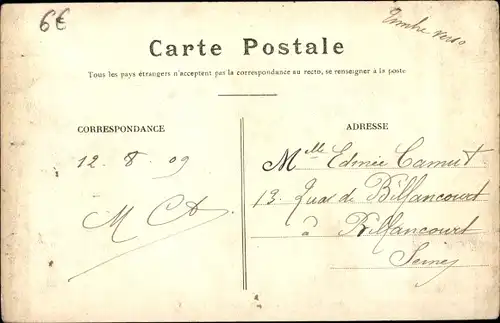 6€
Timbre verso
Carte Postale
Tous les pays étrangers n'acceptent pas la correspondance au recto, se renseigner à la poste
CORRESPONDANCE
ADRESSE
12 . 8 . 09
Mlle Edmée Camut
13, Quai de Billancourt
à Billancourt
Seine